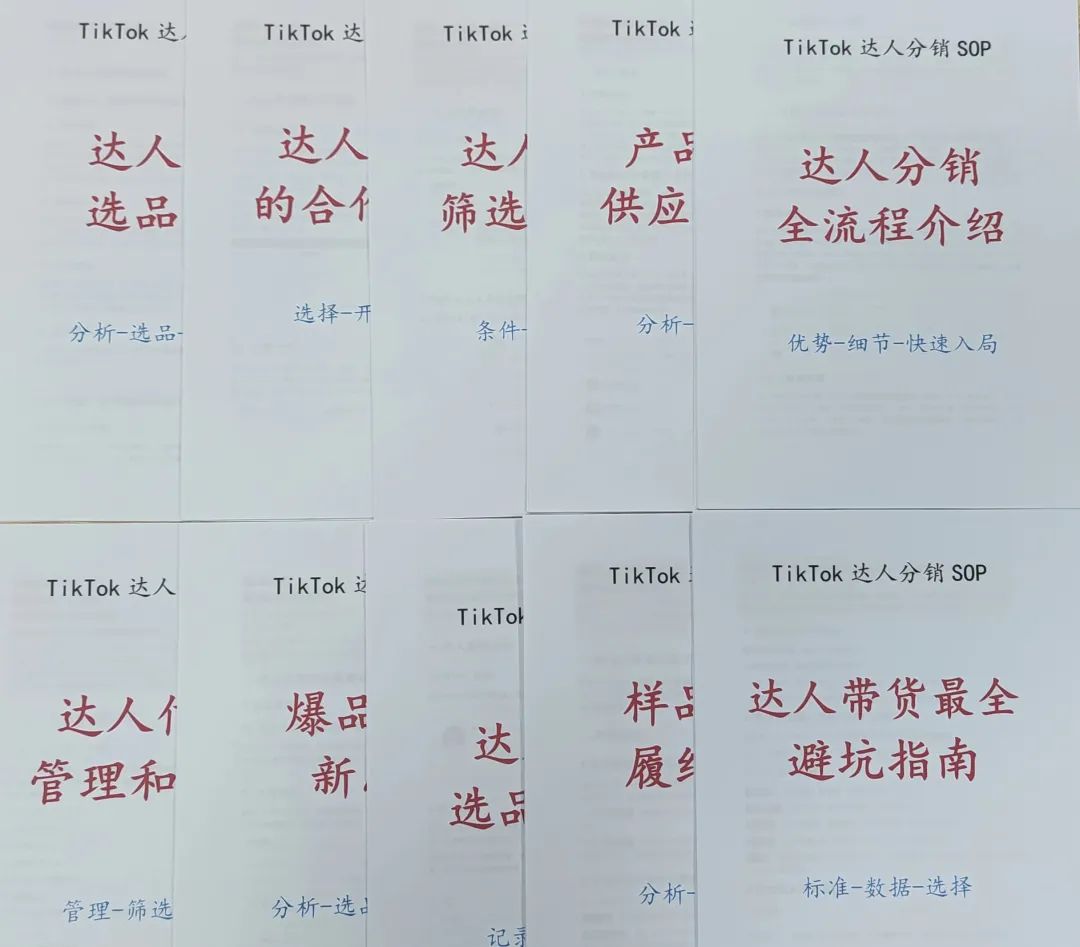 TikTok 达
达人
选品
分析-选品-
TikTok 达
达人
的合
选择-开
TikTok
达
筛选
条件-
TikTok
产品
供应
分析-
TikTok 达人分销 SOP
达人分销
全流程介绍
优势-细节-快速入局
TikTok 达人
达人
管理和
管理-筛选
TikTok
爆品
新
分析-选品
TikTok
达
选品
记录
TikTok
样品
履
分析-
TikTok 达人分销 SOP
达人带货最全
避坑指南
标准-数据-选择